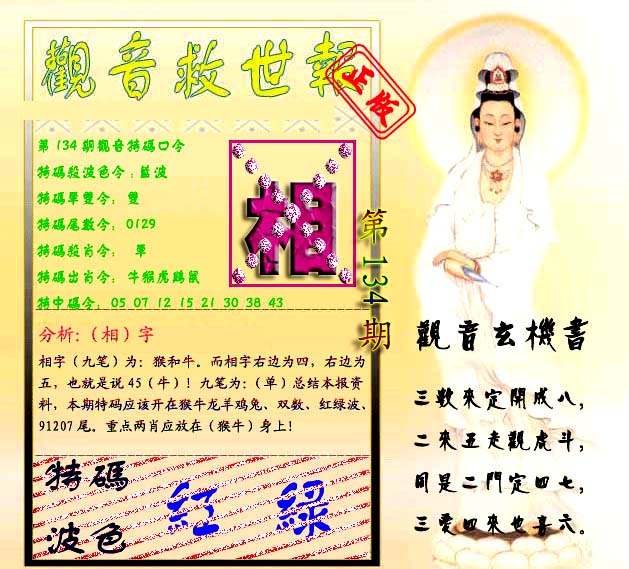 觀音救世報
第134期觀音特碼口令
特碼殺波色令：藍波
特碼單雙令：雙
特碼尾數令：0129
特碼殺肖令：單
特碼出肖令：牛猴虎鷄鼠
特中碼令：05 07 12 15 21 30 38 43
相
第134期
分析：（相）字
相字（九笔）为：猴和牛。而相字右边为四，右边为
五，也就是说45（牛）！九笔为：（单）总结本报资
料，本期特码应该开在猴牛龙羊鸡兔、双数、红绿波、
91207尾。重点两肖应放在（猴牛）身上！
特碼
波色
紅 綠
觀音玄機書
三數來定開成八，
二來五走觀虎斗，
同是二門定四七，
三愛四來也喜六。